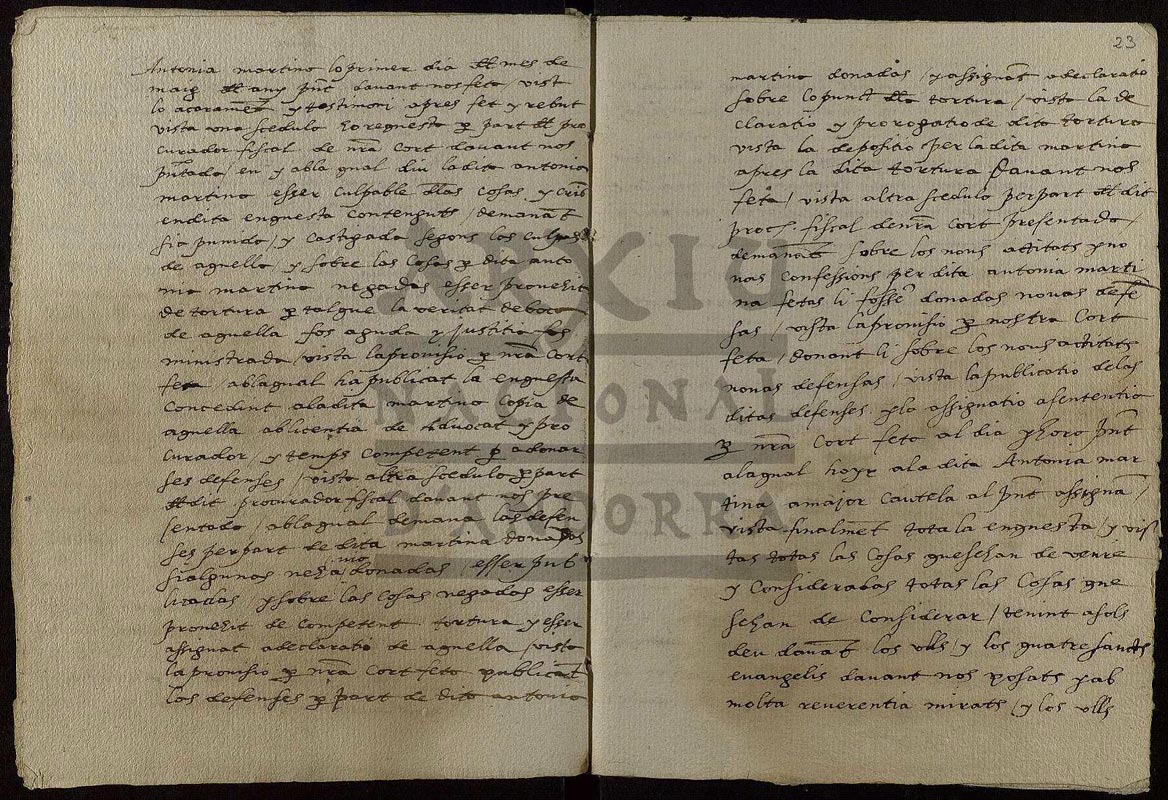 Antonia martina lo primer dia dll mes de
maig dll any pnt davant nos feta vist
lo acarament y testimoni apres fet y rebut
vista una scedula ho requesta per part dll pro
curador fiscal de nra Cort davant nos
pntada / en y abla qual diu la dita antonia
martina esser culpable dlas cosas y crims
en dita enquesta contenguts / demanāt
sia punida / y castigada segons los culpas
de aquella / y sobre las cosas per dita anto
nia martina negadas esser provehit
de tortura per tal que la veritat de boca
de aquella fos aguda y justitia
ministrada / vista la provisio per nra Cort
feta / abla qual ha publicat la enquesta
concedint a la dita martina copia de
aquella ab licentia de Advocat y pro
curador / y temps competent per a donar
ses defenses / vista altra scedula per part
dll dit procurador fiscal davant nos pre
sentada / abla qual demana las defen
ses per part de dita martina donadas
si algunas neha via donadas / esser pub
licadas / y sobre las cosas negadas esser
provehit de competent tortura y esser
assignat a declaratio de aquella / vista
la provisio per nra Cort feta publicāt
los defenses per part de dita antonia
23
martina donadas / y assignāt a declaratio
sobre lo punct dla tortura / vista la de
claratio y prorogatio de dita tortura
vista la depositio per la dita martina
apres la dita tortura davant nos
feta / vista altra scedula per part dll dit
procr. fiscal de nra Cort presentada /
demanāt sobre los nous actitats y no
vas confessions per dita antonia marti
na fetas li fossen donadas novas defē
sas / vista la provisio per nostra Cort
feta / donant li sobre los nous actitats
novas defensas / vista la publicatio de las
ditas defenses y la assignatio a sententia
per nra Cort feta al dia y hora pnt
a la qual hoyr a la dita Antonia mar
tina a major cautela al pnt assignā /
vista finalmēt tota la enquesta / y vis
tas totas las cosas que sehan de veure
y considerabas totas las cosas que
sehan de considerar / tenint a sols
deu davāt los ulls / y los quatre sancts
evangelis davant nos posats y ab
molta reverentia mirats / y los ulls
ARXIU
NACIONAL
D'ANDORRA